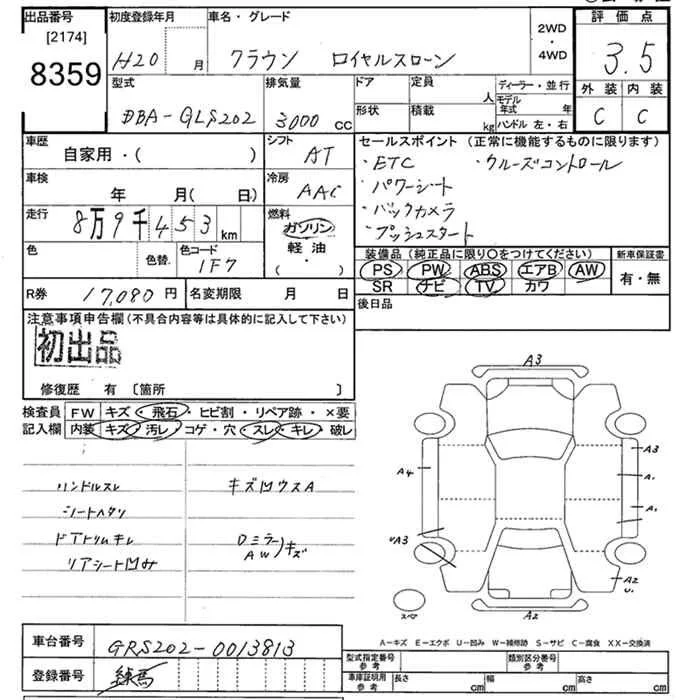 出品番号
[2174]
8359
初度登録年月
H20 月
車名・グレード
クラウン ロイヤルスローン
2WD
・
4WD
評価点
3.5
外装 内装
C C
型式
DBA-GLS202
排気量
3000 CC
ドア
定員
人
形状
積載
kg
ディーラー・並行
モデル年式 年
ハンドル 左・右
車歴
自家用・( )
シフト
AT
セールスポイント (正常に機能するものに限ります)
・ETC ・クルーズコントロール
・パワーシート
・バックカメラ
・プッシュスタート
車検
年 月( 日)
冷房
AAC
走行
8万9千453km
燃料
ガソリン
軽油
( )
色
色替
色コード
1F7
装備品 (純正品に限り○をつけてください)
PS PW ABS エアB AW
SR ナビ TV カワ
新車保証書
有・無
R券 17,080円
名変期限 月 日
後日品
注意事項申告欄 (不具合内容等は具体的に記入して下さい)
初出品
修復歴 有 〔箇所 〕
検査員記入欄
FW キズ・飛石・ヒビ割・リペア跡・×要
内装 キズ・汚レ・コゲ・穴・スレ・キレ・破レ
ハンドルスレ
シートヘタリ
ドアトリムキレ
リアシート凹み
キズ凹ウスA
Dミラー
AW キズ
A3
A4
A3
A1
A1
UA3
A2
U1
A2
スペア
A−キズ E−エクボ U−凹み W−補修跡 S−サビ C−腐食 XX−交換済
車台番号 GRS202-0013813
登録番号 練馬
型式指定番号
参考
類別区分番号
参考
車庫証明用
参考
長さ cm
幅 cm
高さ cm